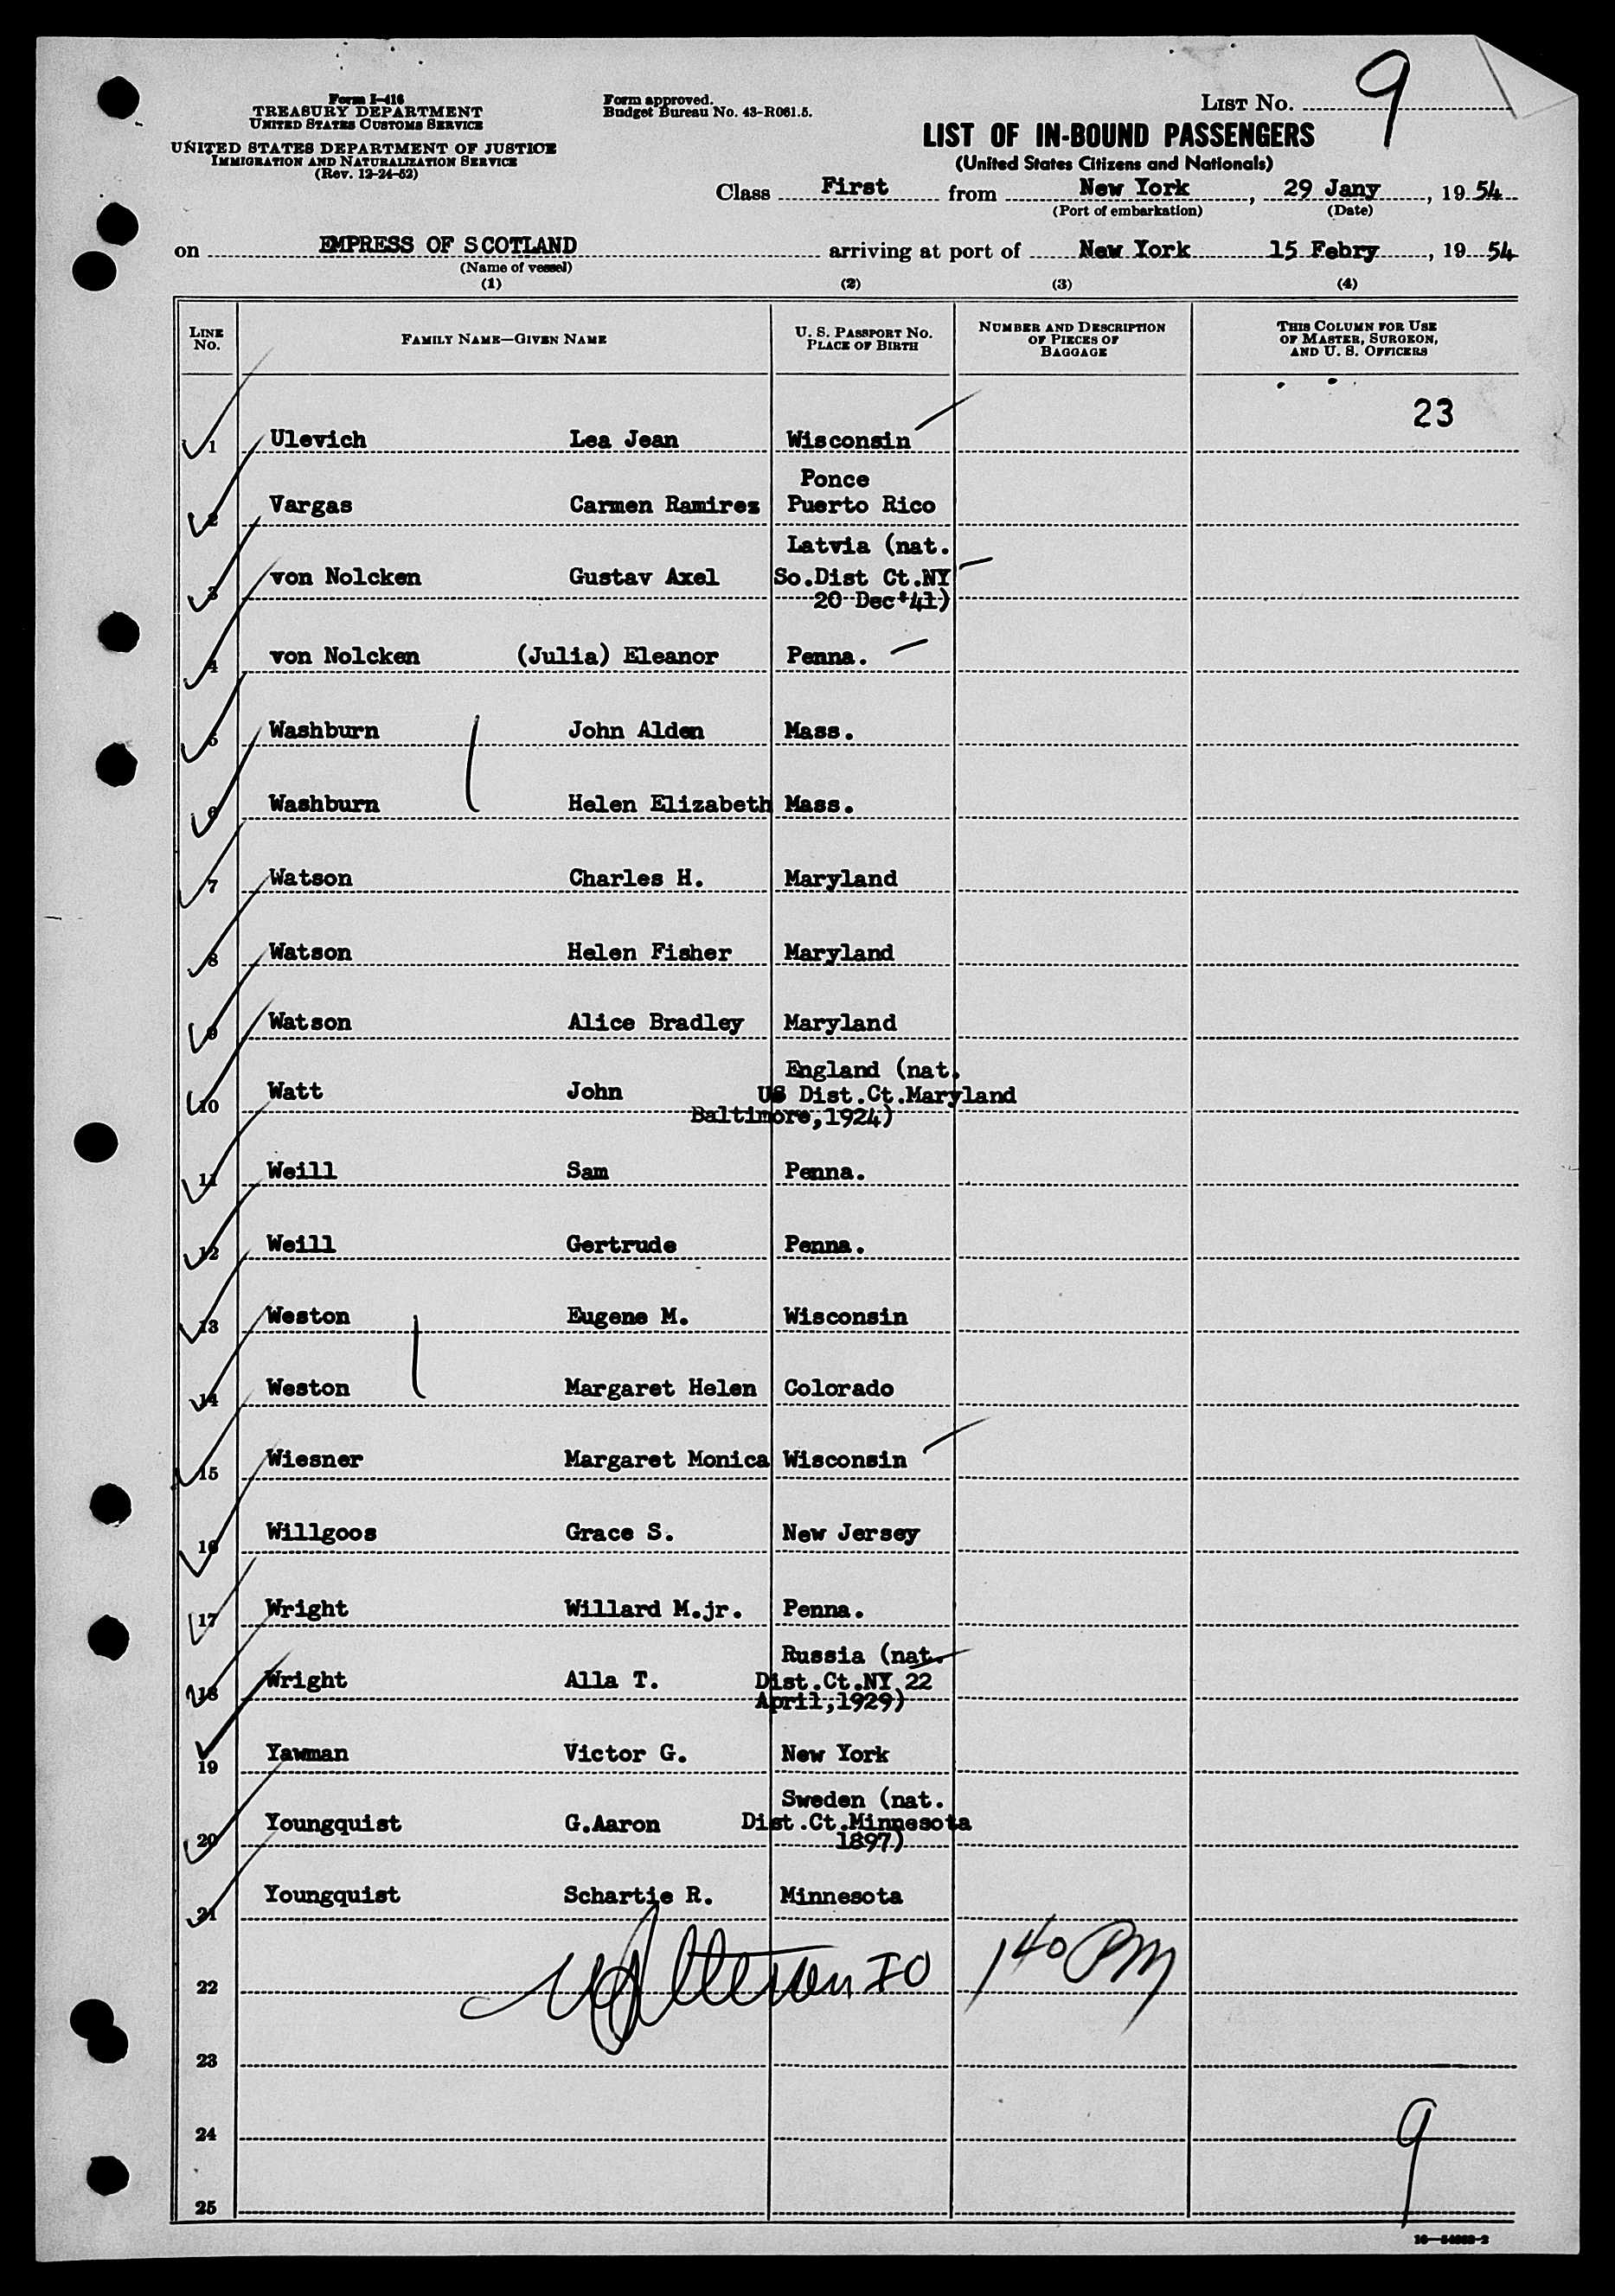 Form I-416
TREASURY DEPARTMENT
UNITED STATES CUSTOMS SERVICE
UNITED STATES DEPARTMENT OF JUSTICE
IMMIGRATION AND NATURALIZATION SERVICE
(Rev. 12-24-52)
Form approved.
Budget Bureau No. 43-R061.5.
LIST No. 9
LIST OF IN-BOUND PASSENGERS
(United States Citizens and Nationals)
Class First from New York, 29 Jany, 1954
(Port of embarkation) (Date)
on EMPRESS OF SCOTLAND arriving at port of New York 15 Febry, 1954
(Name of vessel)
(1) (2) (3) (4)
LINE No. FAMILY NAME—GIVEN NAME U. S. PASSPORT NO. PLACE OF BIRTH NUMBER AND DESCRIPTION OF PIECES OF BAGGAGE THIS COLUMN FOR USE OF MASTER, SURGEON, AND U. S. OFFICERS
23
1 Ulevich Lea Jean Wisconsin
Ponce
2 Vargas Carmen Ramirez Puerto Rico
Latvia (nat.
3 von Nolcken Gustav Axel So.Dist Ct.NY
20 Dec'41)
4 von Nolcken (Julia) Eleanor Penna.
5 Washburn John Alden Mass.
6 Washburn Helen Elizabeth Mass.
7 Watson Charles H. Maryland
8 Watson Helen Fisher Maryland
9 Watson Alice Bradley Maryland
England (nat.
10 Watt John US Dist.Ct.Maryland
Baltimore,1924)
11 Weill Sam Penna.
12 Weill Gertrude Penna.
13 Weston Eugene M. Wisconsin
14 Weston Margaret Helen Colorado
15 Wiesner Margaret Monica Wisconsin
16 Willgoos Grace S. New Jersey
17 Wright Willard M.jr. Penna.
Russia (nat.
18 Wright Alla T. Dist.Ct.NY 22
April,1929)
19 Yawman Victor G. New York
Sweden (nat.
20 Youngquist G.Aaron Dist.Ct.Minnesota
1897)
21 Youngquist Schartie R. Minnesota
22 IO 140 PM
23
24
9
25